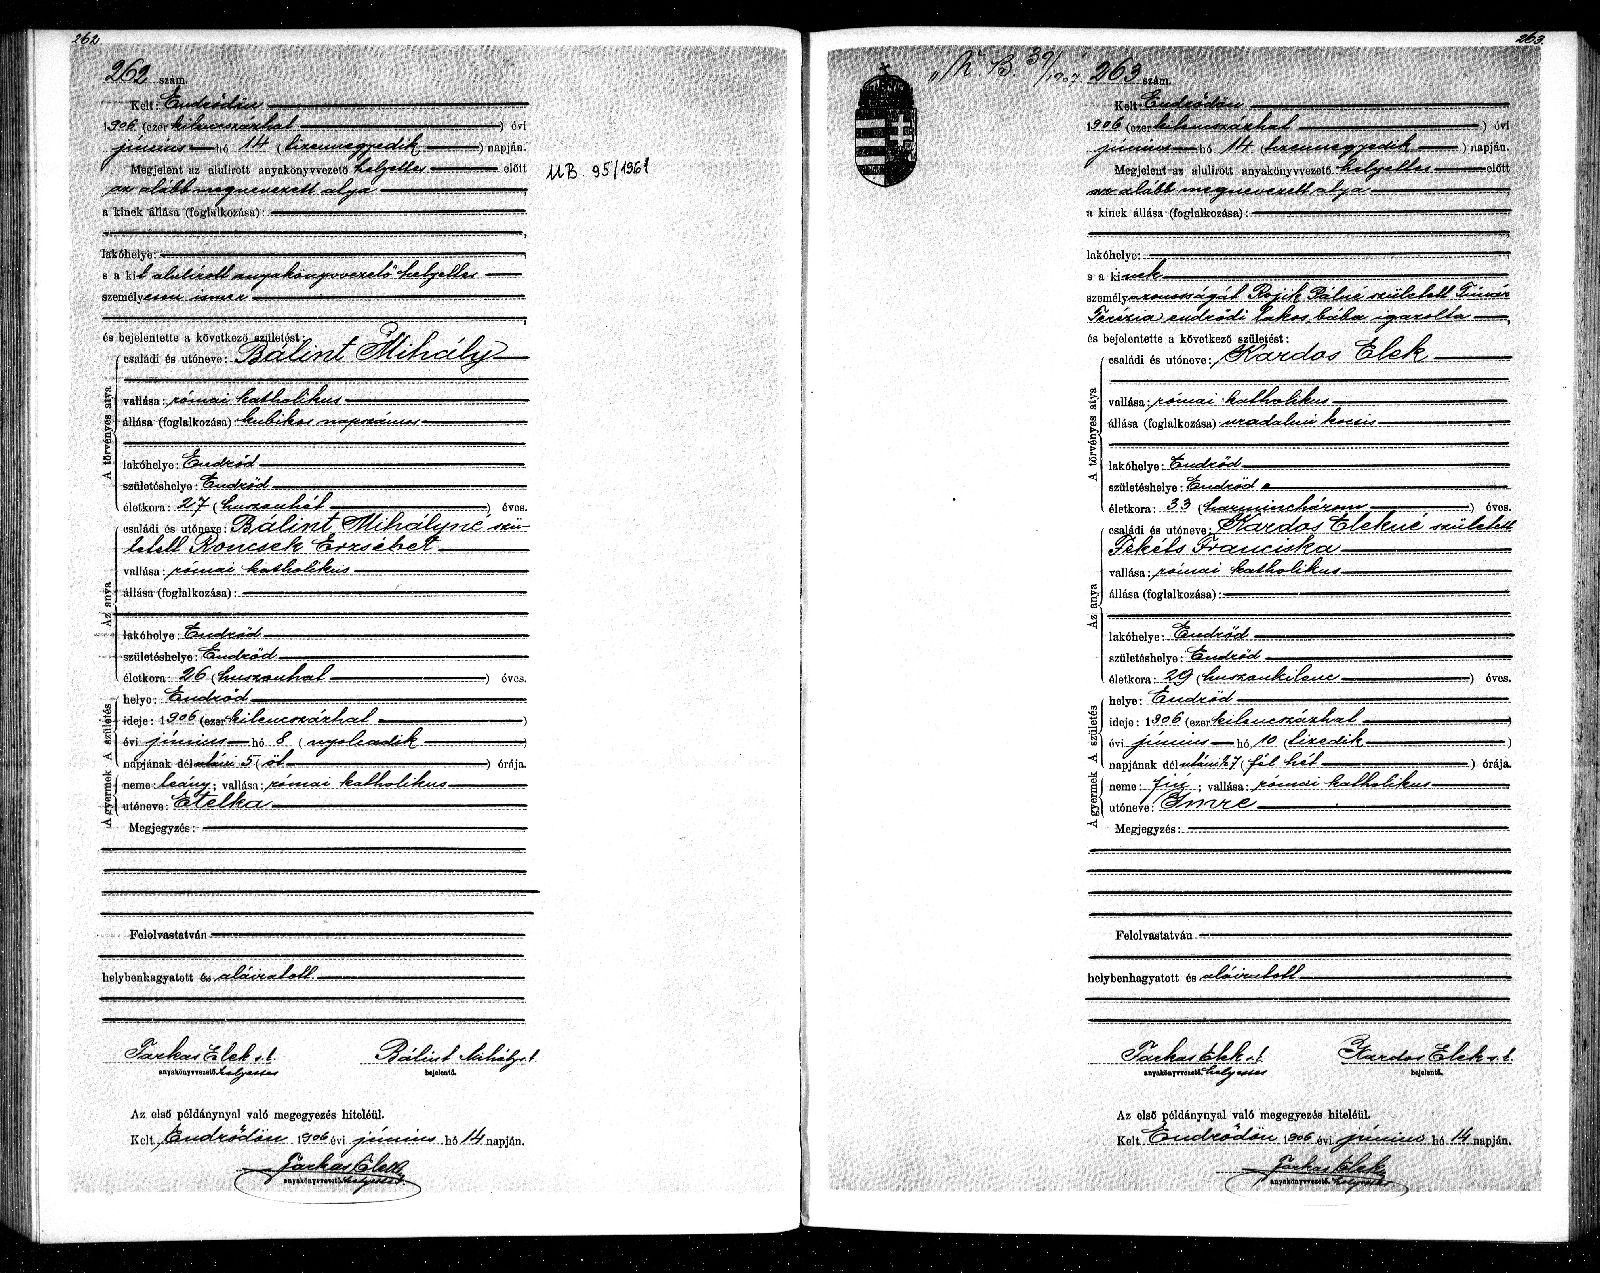 262
262 szám.
Kelt: Endrődön
1906 (ezer kilencszázhat) évi
június hó 14 (tizennegyedik) napján.
Megjelent az alulirott anyakönyvvezető helyettes előtt
az alább megnevezett atya
a kinek állása (foglalkozása):
lakóhelye:
s a kit alulirott anyakönyvvezető helyettes
személyesen ismer
és bejelentette a következő születést:
A törvényes atya
családi és utóneve: Bálint Mihály
vallása: római katholikus
állása (foglalkozása) kubikos napszámos
lakóhelye: Endrőd
születéshelye: Endrőd
életkora: 27 (huszonhét) éves.
Az anya
családi és utóneve: Bálint Mihályné szü-
letett Roncsek Erzsébet
vallása: római katholikus
állása (foglalkozása):
lakóhelye: Endrőd
születéshelye: Endrőd
életkora: 26 (huszonhat) éves.
A születés
helye: Endrőd
ideje: 1906 (ezer kilencszázhat)
évi június hó 8 (nyolcadik)
napjának délutáni 5 (öt) órája.
A gyermek
neme: leány; vallása: római katholikus
utóneve: Etelka
Megjegyzés:
Felolvastatván
helybenhagyatott és aláiratott
Farkas Elek s. k. Bálint Mihály s. k.
anyakönyvvezető. helyettes bejelentő.
Az első példánynyal való megegyezés hiteléül.
Kelt Endrődön 1906 évi június hó 14 napján.
Farkas Elek
anyakönyvvezető. helyettes
UB. 95/1961
263.
M. B. 39/1907 263 szám.
Kelt: Endrődön
1906 (ezer kilencszázhat) évi
június hó 14 (tizennegyedik) napján.
Megjelent az alulirott anyakönyvvezető helyettes előtt
az alább megnevezett atya
a kinek állása (foglalkozása):
lakóhelye:
s a kinek
személyazonosságát Rojik Pálné született Timár
Terézia endrődi lakos, bába igazolta
és bejelentette a következő születést:
A törvényes atya
családi és utóneve: Kardos Elek
vallása: római katholikus
állása (foglalkozása) uradalmi kocsis
lakóhelye: Endrőd
születéshelye: Endrőd
életkora: 33 (harminchárom) éves.
Az anya
családi és utóneve: Kardos Elekné született
Fekéts Franciska
vallása: római katholikus
állása (foglalkozása):
lakóhelye: Endrőd
születéshelye: Endrőd
életkora: 29 (huszonkilenc) éves.
A születés
helye: Endrőd
ideje: 1906 (ezer kilencszázhat)
évi június hó 10 (tizedik)
napjának délutáni ½7 (fél hét) órája.
A gyermek
neme: fiú; vallása: római katholikus
utóneve: Imre
Megjegyzés:
Felolvastatván
helybenhagyatott és aláiratott
Farkas Elek s. k. Kardos Elek s. k.
anyakönyvvezető. helyettes bejelentő.
Az első példánynyal való megegyezés hiteléül.
Kelt Endrődön 1906 évi június hó 14 napján.
Farkas Elek
anyakönyvvezető. helyettes